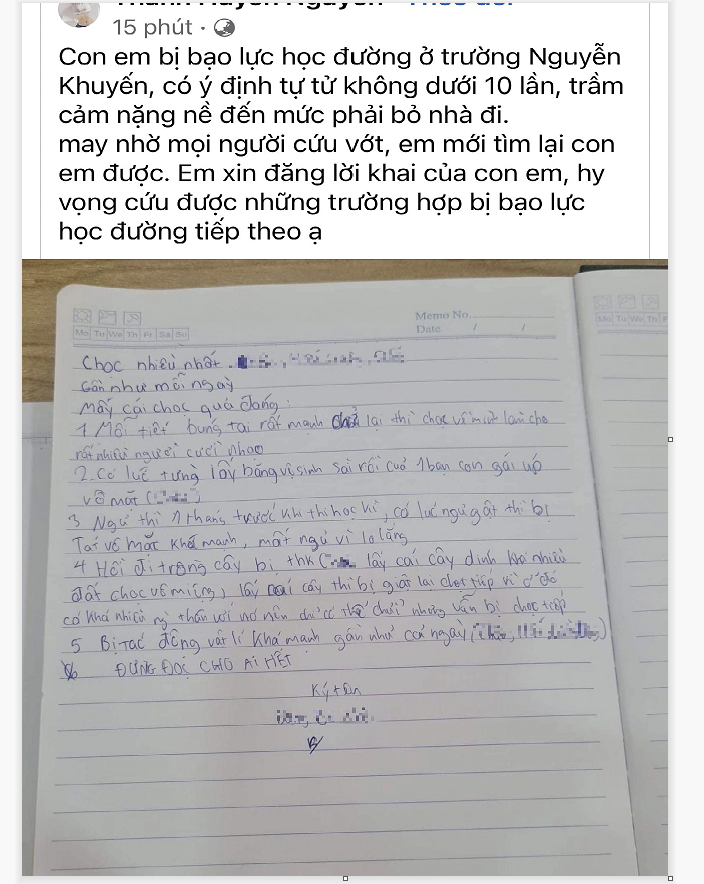 15 phút ·
Con em bị bạo lực học đường ở trường Nguyễn
Khuyến, có ý định tự tử không dưới 10 lần, trầm
cảm nặng nề đến mức phải bỏ nhà đi.
may nhờ mọi người cứu vớt, em mới tìm lại con
em được. Em xin đăng lời khai của con em, hy
vọng cứu được những trường hợp bị bạo lực
học đường tiếp theo ạ
Memo No.
Mo Tu We Th Fr Sa Su
Date / /
Mo Tu We Th F
Chọc nhiều nhất
Gần như mỗi ngày
Mấy cái chọc quá đáng:
1 Mỗi tiết búng tai rất mạnh lại thì chọc về mút làm cho
rất nhiều người cười nhạo
2. Có lúc từng lấy băng vệ sinh sài rồi của 1 bạn con gái úp
vô mặt (
3 Ngủ thì 1 tháng trước khi thi học kì, có lúc ngủ gật thì bị
Tát vô mặt khá mạnh, mất ngủ vì lo lắng
4 Hồi đi trồng cây bị thk ( lấy cái cây dính khá nhiều
đất chọc vô miệng, lấy cây thì bị giật lại chọt tiếp vì ở đó
có khá nhiều ng thân với nó nên chỉ có thể chửi nhưng vẫn bị chọc tiếp
5 Bị Tác động vật lí khá mạnh gần như cả ngày ( )
ĐỪNG ĐỌC CHO AI HẾT
Ký tên